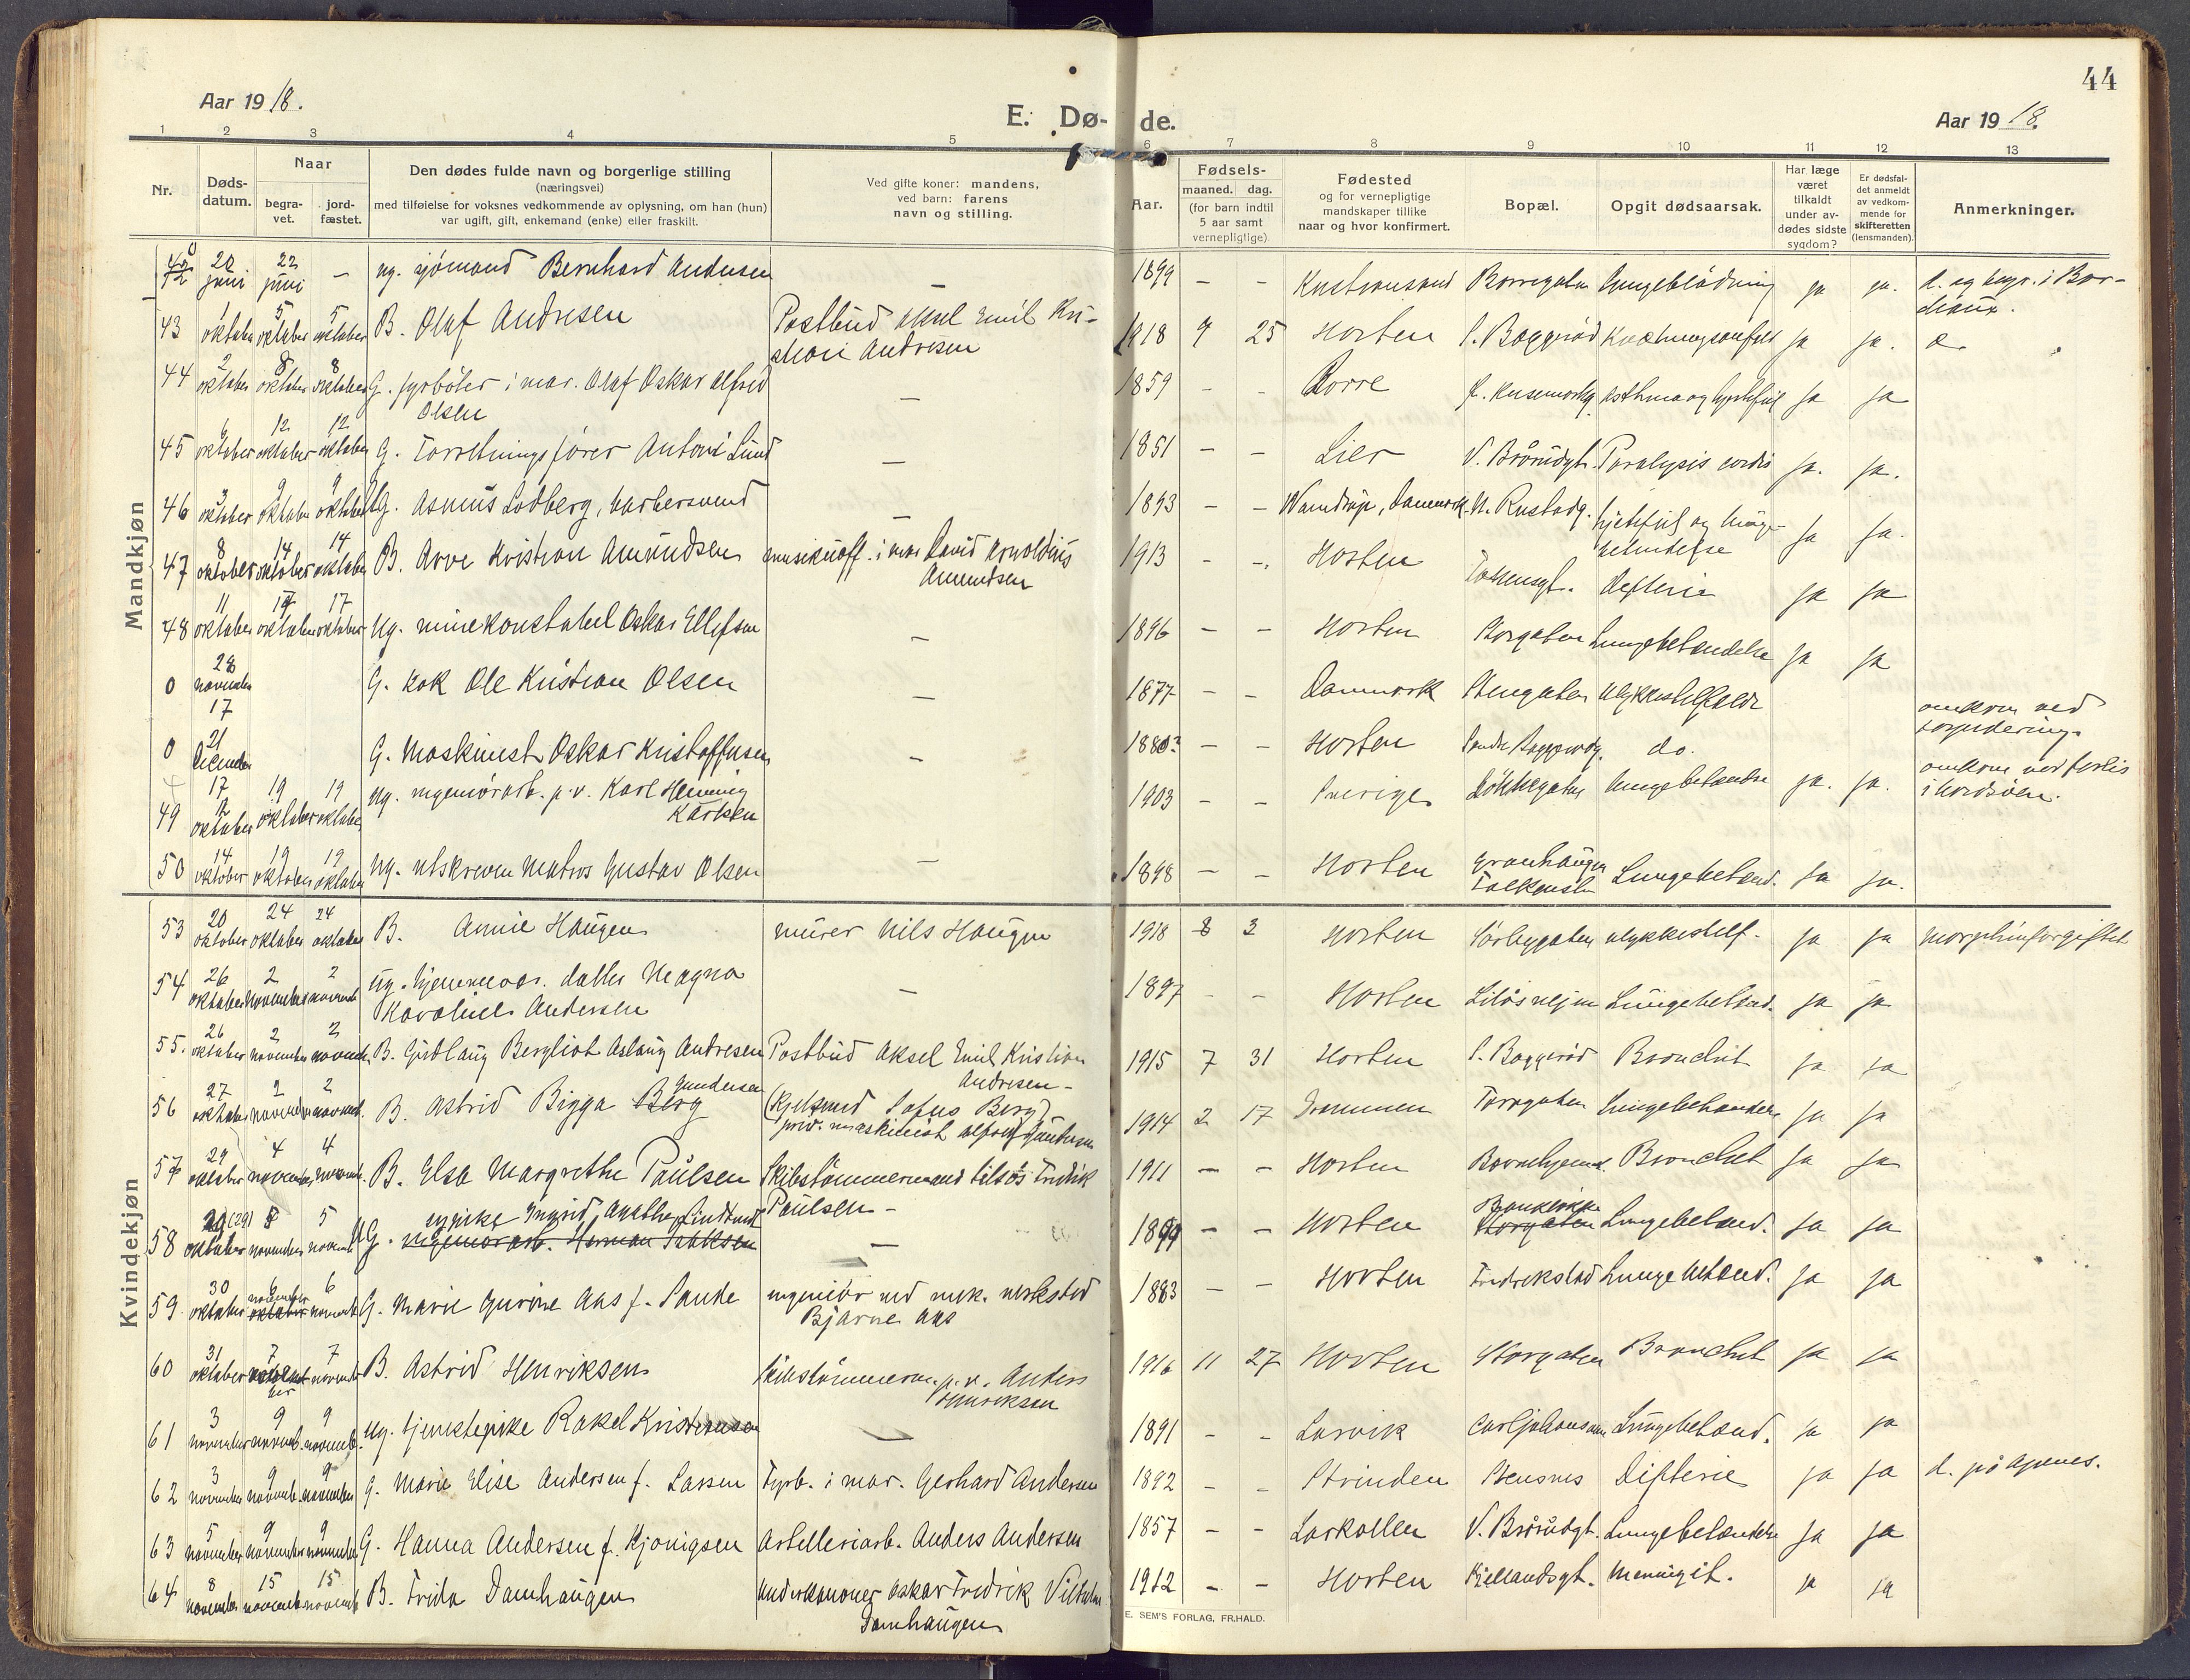 44
Aar 1918.
E. Dø-de.
Aar 1918.
1 2 3 4 5 6 7 8 9 10 11 12 13
Nr.
Døds-
datum.
Naar
begra-
vet.
jord-
fæstet.
Den dødes fulde navn og borgerlige stilling
(næringsvei)
med tilføielse for voksnes vedkommende av oplysning, om han (hun)
var ugift, gift, enkemand (enke) eller fraskilt.
Ved gifte koner: mandens,
ved barn: farens
navn og stilling.
Aar.
Fødsels-
maaned. dag.
(for barn indtil
5 aar samt
vernepligtige)
Fødested
og for vernepligtige
mandskaper tillike
naar og hvor konfirmert.
Bopæl.
Opgit dødsaarsak.
Har læge
været
tilkaldt
under av-
dødes sidste
sygdom?
Er dødsfal-
det anmeldt
av vedkom-
mende for
skifteretten
(lensmanden).
Anmerkninger.
Mandkjøn
0 20 juni 22 juni – ug. sjømand Bernhard Andersen – 1899 – – Kristiansand Borregaten Lungeblødning ja ja. d. og begr. i Bor-
deaux.
43 1 oktober 5 oktober 5 oktober B. Olaf Andresen Postbud Aksel Emil Kri-
stian Andresen 1918 9 25 Horten S. Baggerød ja ja.
44 2 oktober 8 oktober 8 oktober G. fyrbøter i mar. Olaf Oskar Alfred
Olsen – 1859 – – Borre ja ja
45 6 oktober 12 oktober 12 oktober G. Forretningsfører Antoni Lund – 1851 – – Lier V. Brårudgt. Paralysis cordis ja. ja.
46 3 oktober 9 oktober 9 oktober Asmus Lodberg, barbersvend – 1893 – – Wamdrup, Danmark. N. Rustadg. ja ja.
47 8 oktober 14 oktober 14 oktober B. Arve Kristian Amundsen musikuoff. i mar David Arnoldius
Amundsen 1913 – – Horten Difterie ja ja
48 11 oktober 17 oktober 17 oktober ug. minekonstabel Oskar Ellefsen – 1896 – – Horten Storgaten Lungebetændelse ja ja
0 28 november G. kok Ole Kristian Olsen – 1877 – – Danmark Stengaten Ulykkestilfælde omkom ved
torpedering.
0 21 december G. Maskinist Oskar Kristoffersen – – – Horten do. omkom ved forlis
i Nordsøen.
49 12 oktober 19 oktober 19 oktober ug. ingeniørarb. p.v. Karl Henning
Karlsen 1903 – – Sverige Løkkegaten Lungebetændelse ja. ja.
50 14 oktober 19 oktober 19 oktober ug. utskreven Matros Gustav Olsen – 1898 – – Horten Granhaugen
Falkensten Lungebetænd. ja ja.
Kvindekjøn
53 20 oktober 24 oktober 24 oktober B. Annie Haugen murer Nils Haugen 1918 8 3 Horten ulykkestilf. ja ja Morphinforgiftet
54 26 oktober 2 november 2 novemb ug. hjemmevær. datter Magna
Karoline Andersen – 1897 – – Horten Liløsveien Lungebetænd. ja ja
55. 26 oktober 2 november 2 novemb B. Gudlaug Bergliot Aslaug Andresen Postbud Aksel Emil Kristian
Andresen – 1915 7 31 Horten S. Baggerød Bronchit ja ja
56 27 oktober 2 november 2 novemb. B. Astrid Bigga Berg Gundersen (Kjelsmed Sofus Berg)
prov. maskinist Alfred Gundersen 1914 2 17 Drammen Torvgaten Lungebetændelse ja ja
57 29 oktober 4 november 4 novemb. B. Elsa Margrethe Paulsen Skibstømmermand Fredrik
Paulsen – 1911 – – Horten Barnehjemmet Bronchit ja ja
58 29 (29) oktober 5 november 5 novemb sypike Ingrid Agathe Lindtund
G. Ingeniørarb. Herman Isaksen – 1899 – – Horten Storgaten Lungebetænd. ja ja
59. 30 oktober 6 november oktober 6 novemb G. Marie Gurine Aas f. Sande ingeniør ved mek. verksted
Bjarne Aas 1883 – – Horten Fredrikstad Lungebetænd. ja ja
60 31 oktober 7 7 november B. Astrid Henriksen Skibstømmerm. p.v. Anders
Henriksen 1916 11 27 Horten Storgaten Bronchit ja ja
61 3 november 9 novemb. 9 novemb. ug. tjenestepike Rakel Kristensen – 1891 – – Larvik Lungebetænd. ja ja
62 3 november 9 novemb. 9 november G. Marie Elise Andersen f. Larsen Fyrb. i mar. Gerhard Andersen 1892 – – Strinden Difterie ja ja d. på Agnes.
63 5 november 9 november 9 november G. Hanna Andersen f. Kjønigsen Artilleriarb. Anders Andersen 1857 – – Larkollen V. Brårudgt. Lungebetændelse ja ja
64 8 november 15 novemb 15 novemb B. Frida Damhaugen Underkanoner Oskar Fredrik Vilhelm
Damhaugen 1912 – – Horten Kjellandsgt. Meningit. ja ja
E. SEM'S FORLAG, FR.HALD.